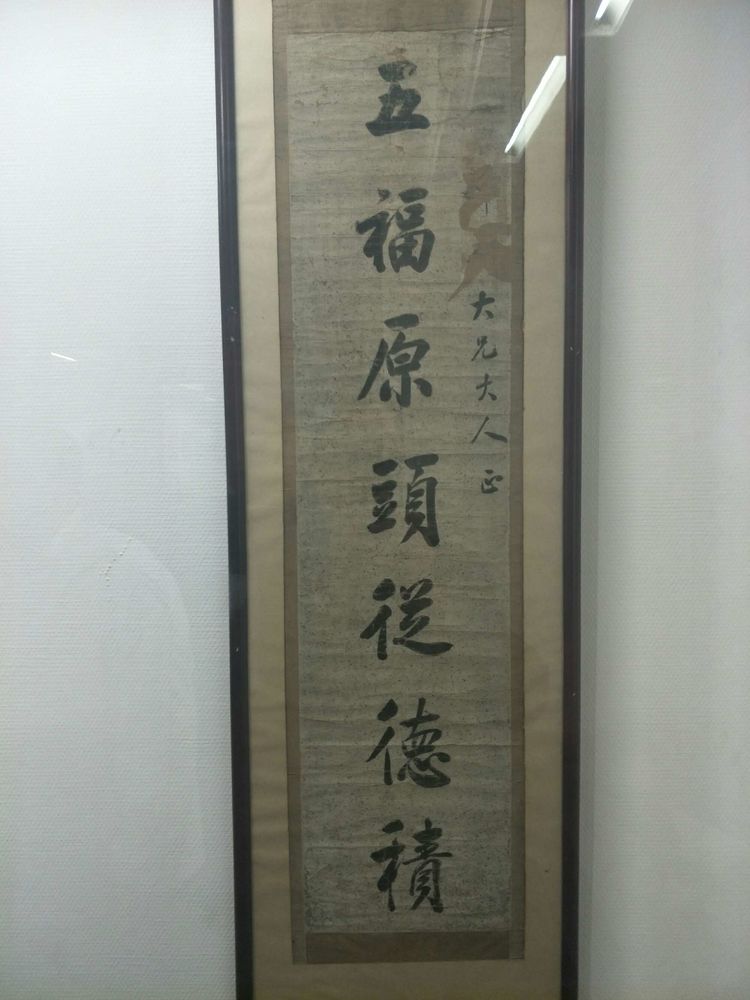 五福原頭從德積
大兄大人正